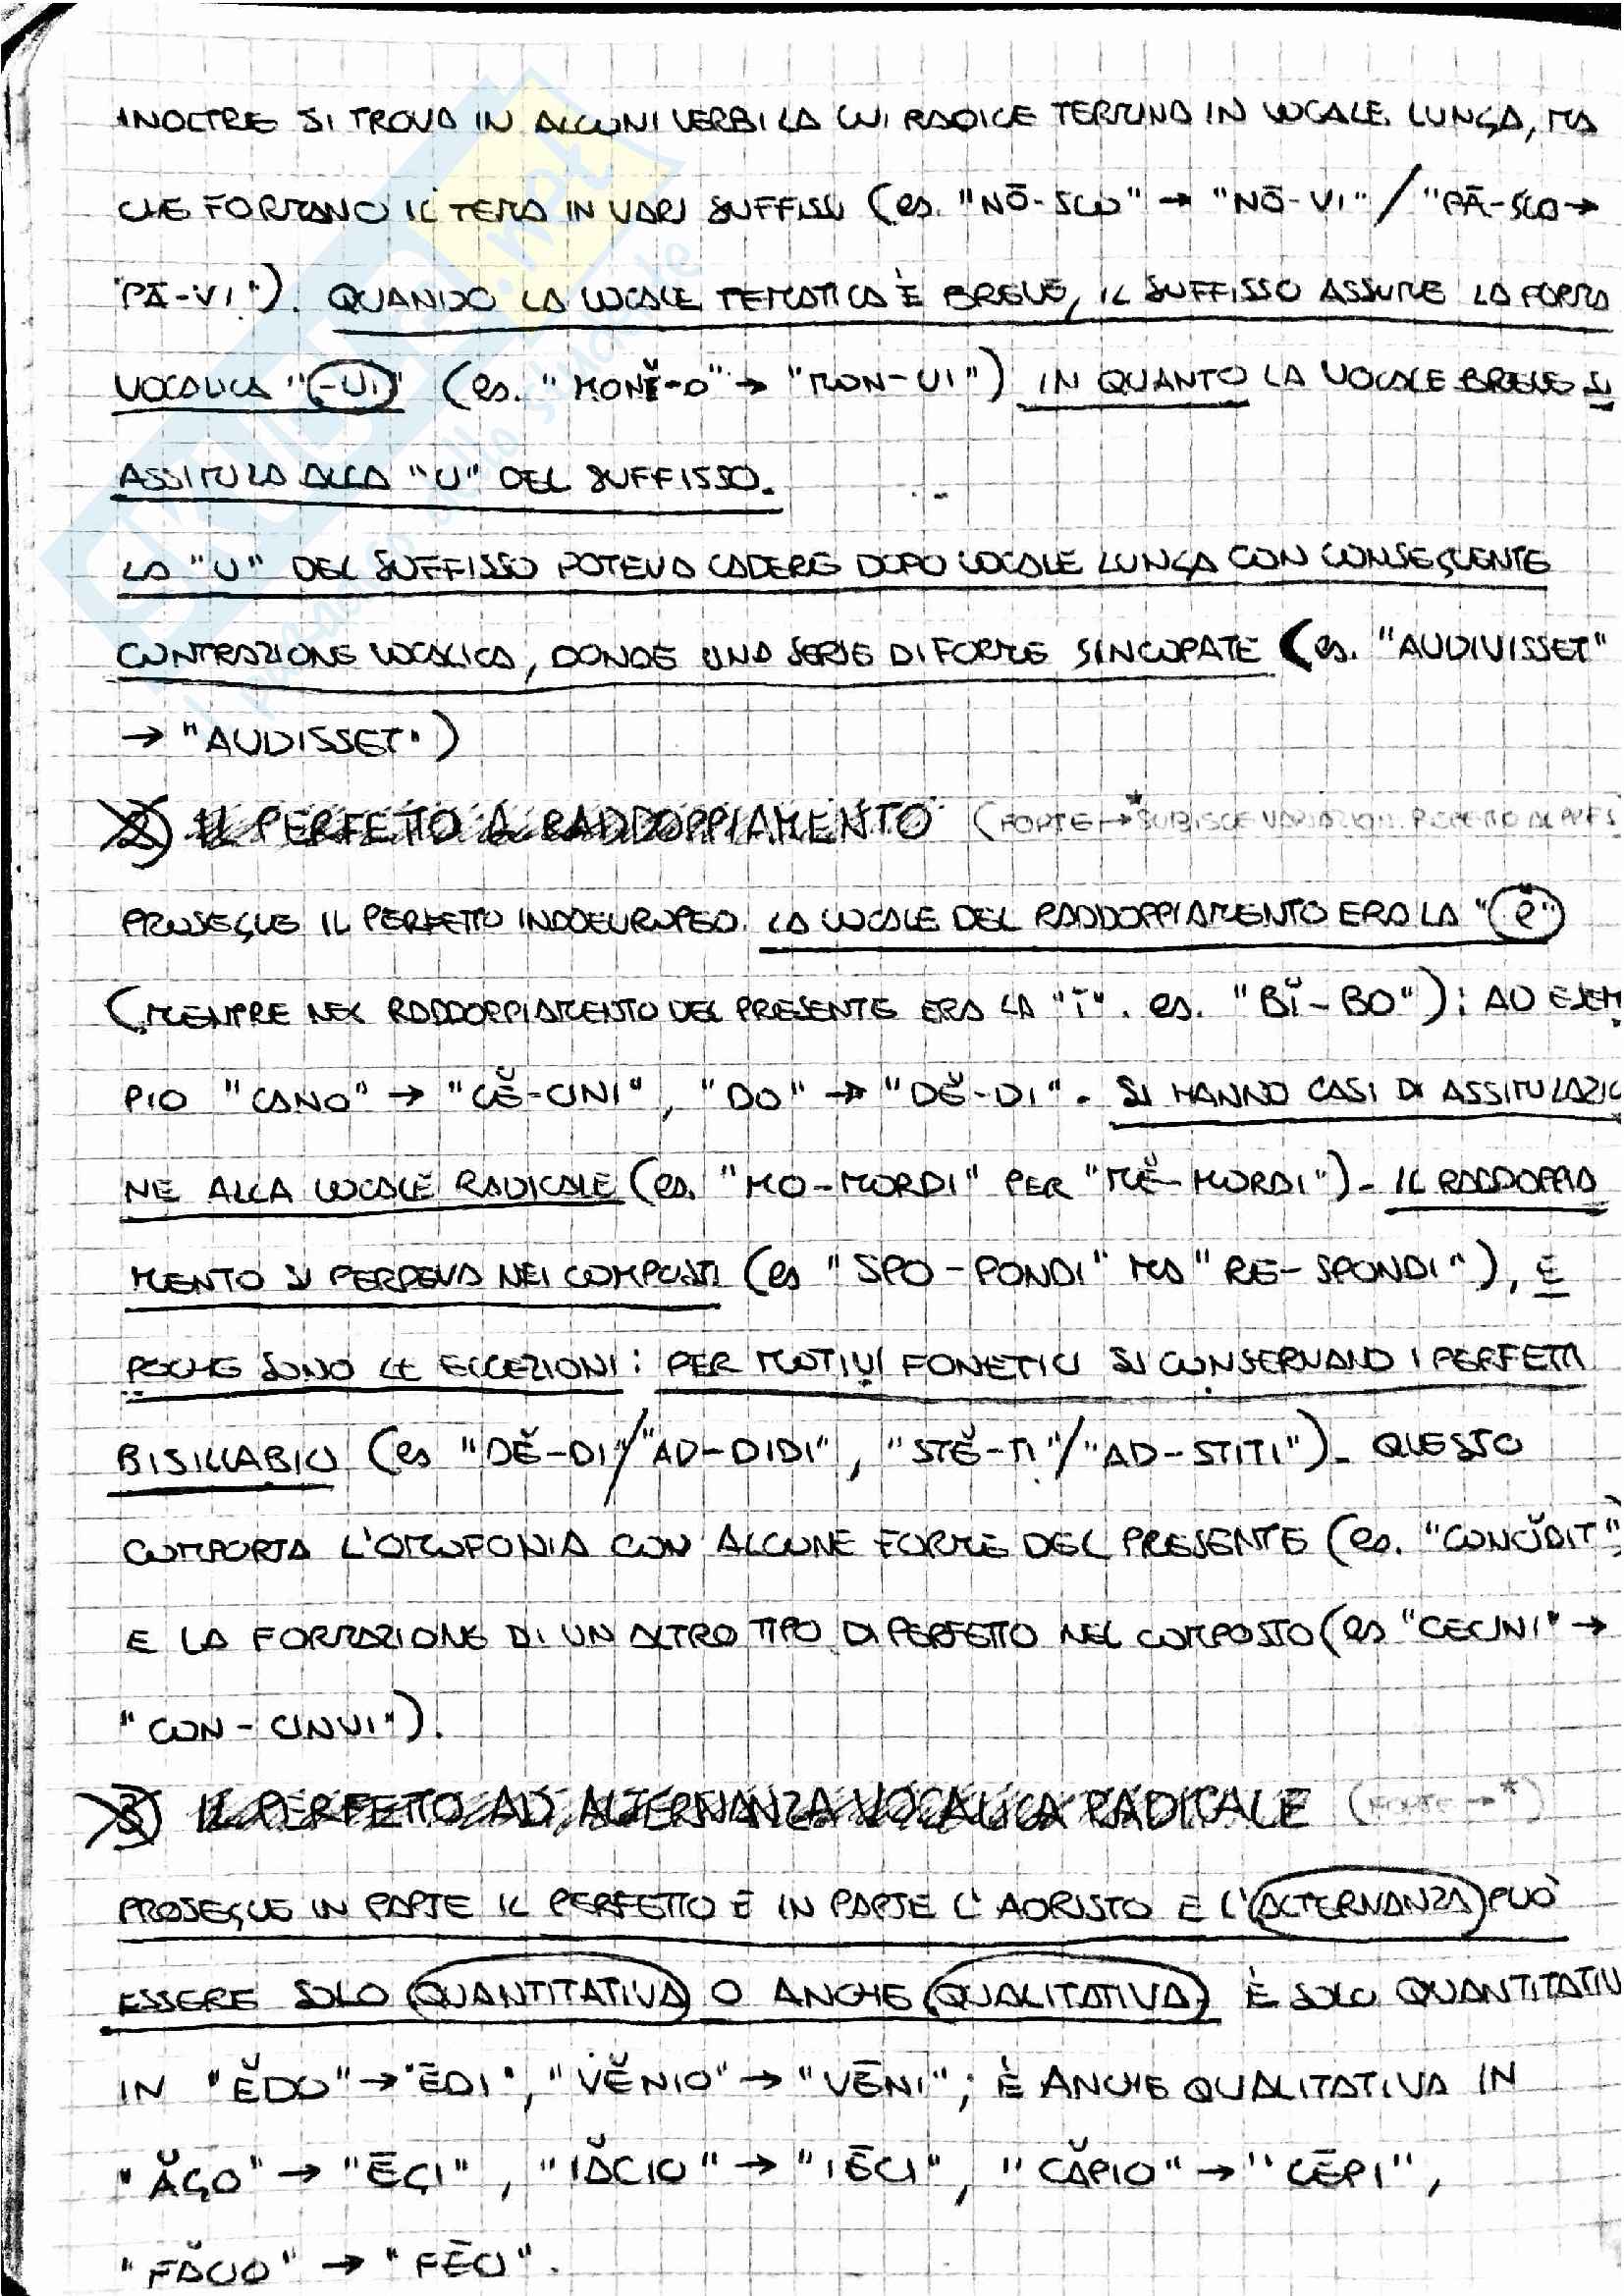 INOLTRE SI TROVA IN ALCUNI VERBI LA CUI RADICE TERMINA IN VOCALE LUNGA, MA
CHE FORMANO IL TEMA IN VARI SUFFISSI (es. "NŌ-SCO" → "NŌ-VI" / "PĀ-SCO →
"PĀ-VI"). QUANDO LA VOCALE TEMATICA È BREVE, IL SUFFISSO ASSUME LA FORMA
VOCALICA "-UI" (es. "MONĔ-O" → "MON-UI") IN QUANTO LA VOCALE BREVE SI
ASSIMILA ALLA "U" DEL SUFFISSO.
LA "U" DEL SUFFISSO POTEVA CADERE DOPO VOCALE LUNGA CON CONSEGUENTE
CONTRAZIONE VOCALICA, DONDE UNA SERIE DI FORME SINCOPATE (es. "AUDIVISSET"
→ "AUDISSET")
2) IL PERFETTO A RADDOPPIAMENTO (FORTE →* SUBISCE VARIAZIONI RISPETTO AL PRES
PROSEGUE IL PERFETTO INDOEUROPEO. LA VOCALE DEL RADDOPPIAMENTO ERA LA "ĕ"
(MENTRE NEL RADDOPPIAMENTO DEL PRESENTE ERA LA "ĭ". es. "BĬ-BO"): AD ESEM
PIO "CANO" → "CĔ-CINI", "DO" → "DĔ-DI". SI HANNO CASI DI ASSIMILAZIO
NE ALLA VOCALE RADICALE (es. "MO-MORDI" PER "MĔ-MORDI"). IL RADDOPPIA
MENTO SI PERDEVA NEI COMPOSTI (es "SPO-PONDI" MA "RE-SPONDI"), E
POCHE SONO LE ECCEZIONI: PER MOTIVI FONETICI SI CONSERVANO I PERFETTI
BISILLABICI (es "DĔ-DI"/"AD-DIDI", "STĔ-TI"/"AD-STITI"). QUESTO
COMPORTA L'OMOFONIA CON ALCUNE FORME DEL PRESENTE (es. "CONCĬDIT")
E LA FORMAZIONE DI UN ALTRO TIPO DI PERFETTO NEL COMPOSTO (es "CECINI" →
"CON-CINVI").
3) IL PERFETTO AD ALTERNANZA VOCALICA RADICALE (FORTE →*)
PROSEGUE IN PARTE IL PERFETTO E IN PARTE L'AORISTO E L'ALTERNANZA PUÒ
ESSERE SOLO QUANTITATIVA O ANCHE QUALITATIVA. È SOLO QUANTITATIV
IN "ĔDO" → "ĒDI", "VĔNIO" → "VĒNI"; È ANCHE QUALITATIVA IN
"ĂGO" → "ĒGI", "IĂCIO" → "IĒCI", "CĂPIO" → "CĒPI",
"FĂCIO" → "FĒCI".